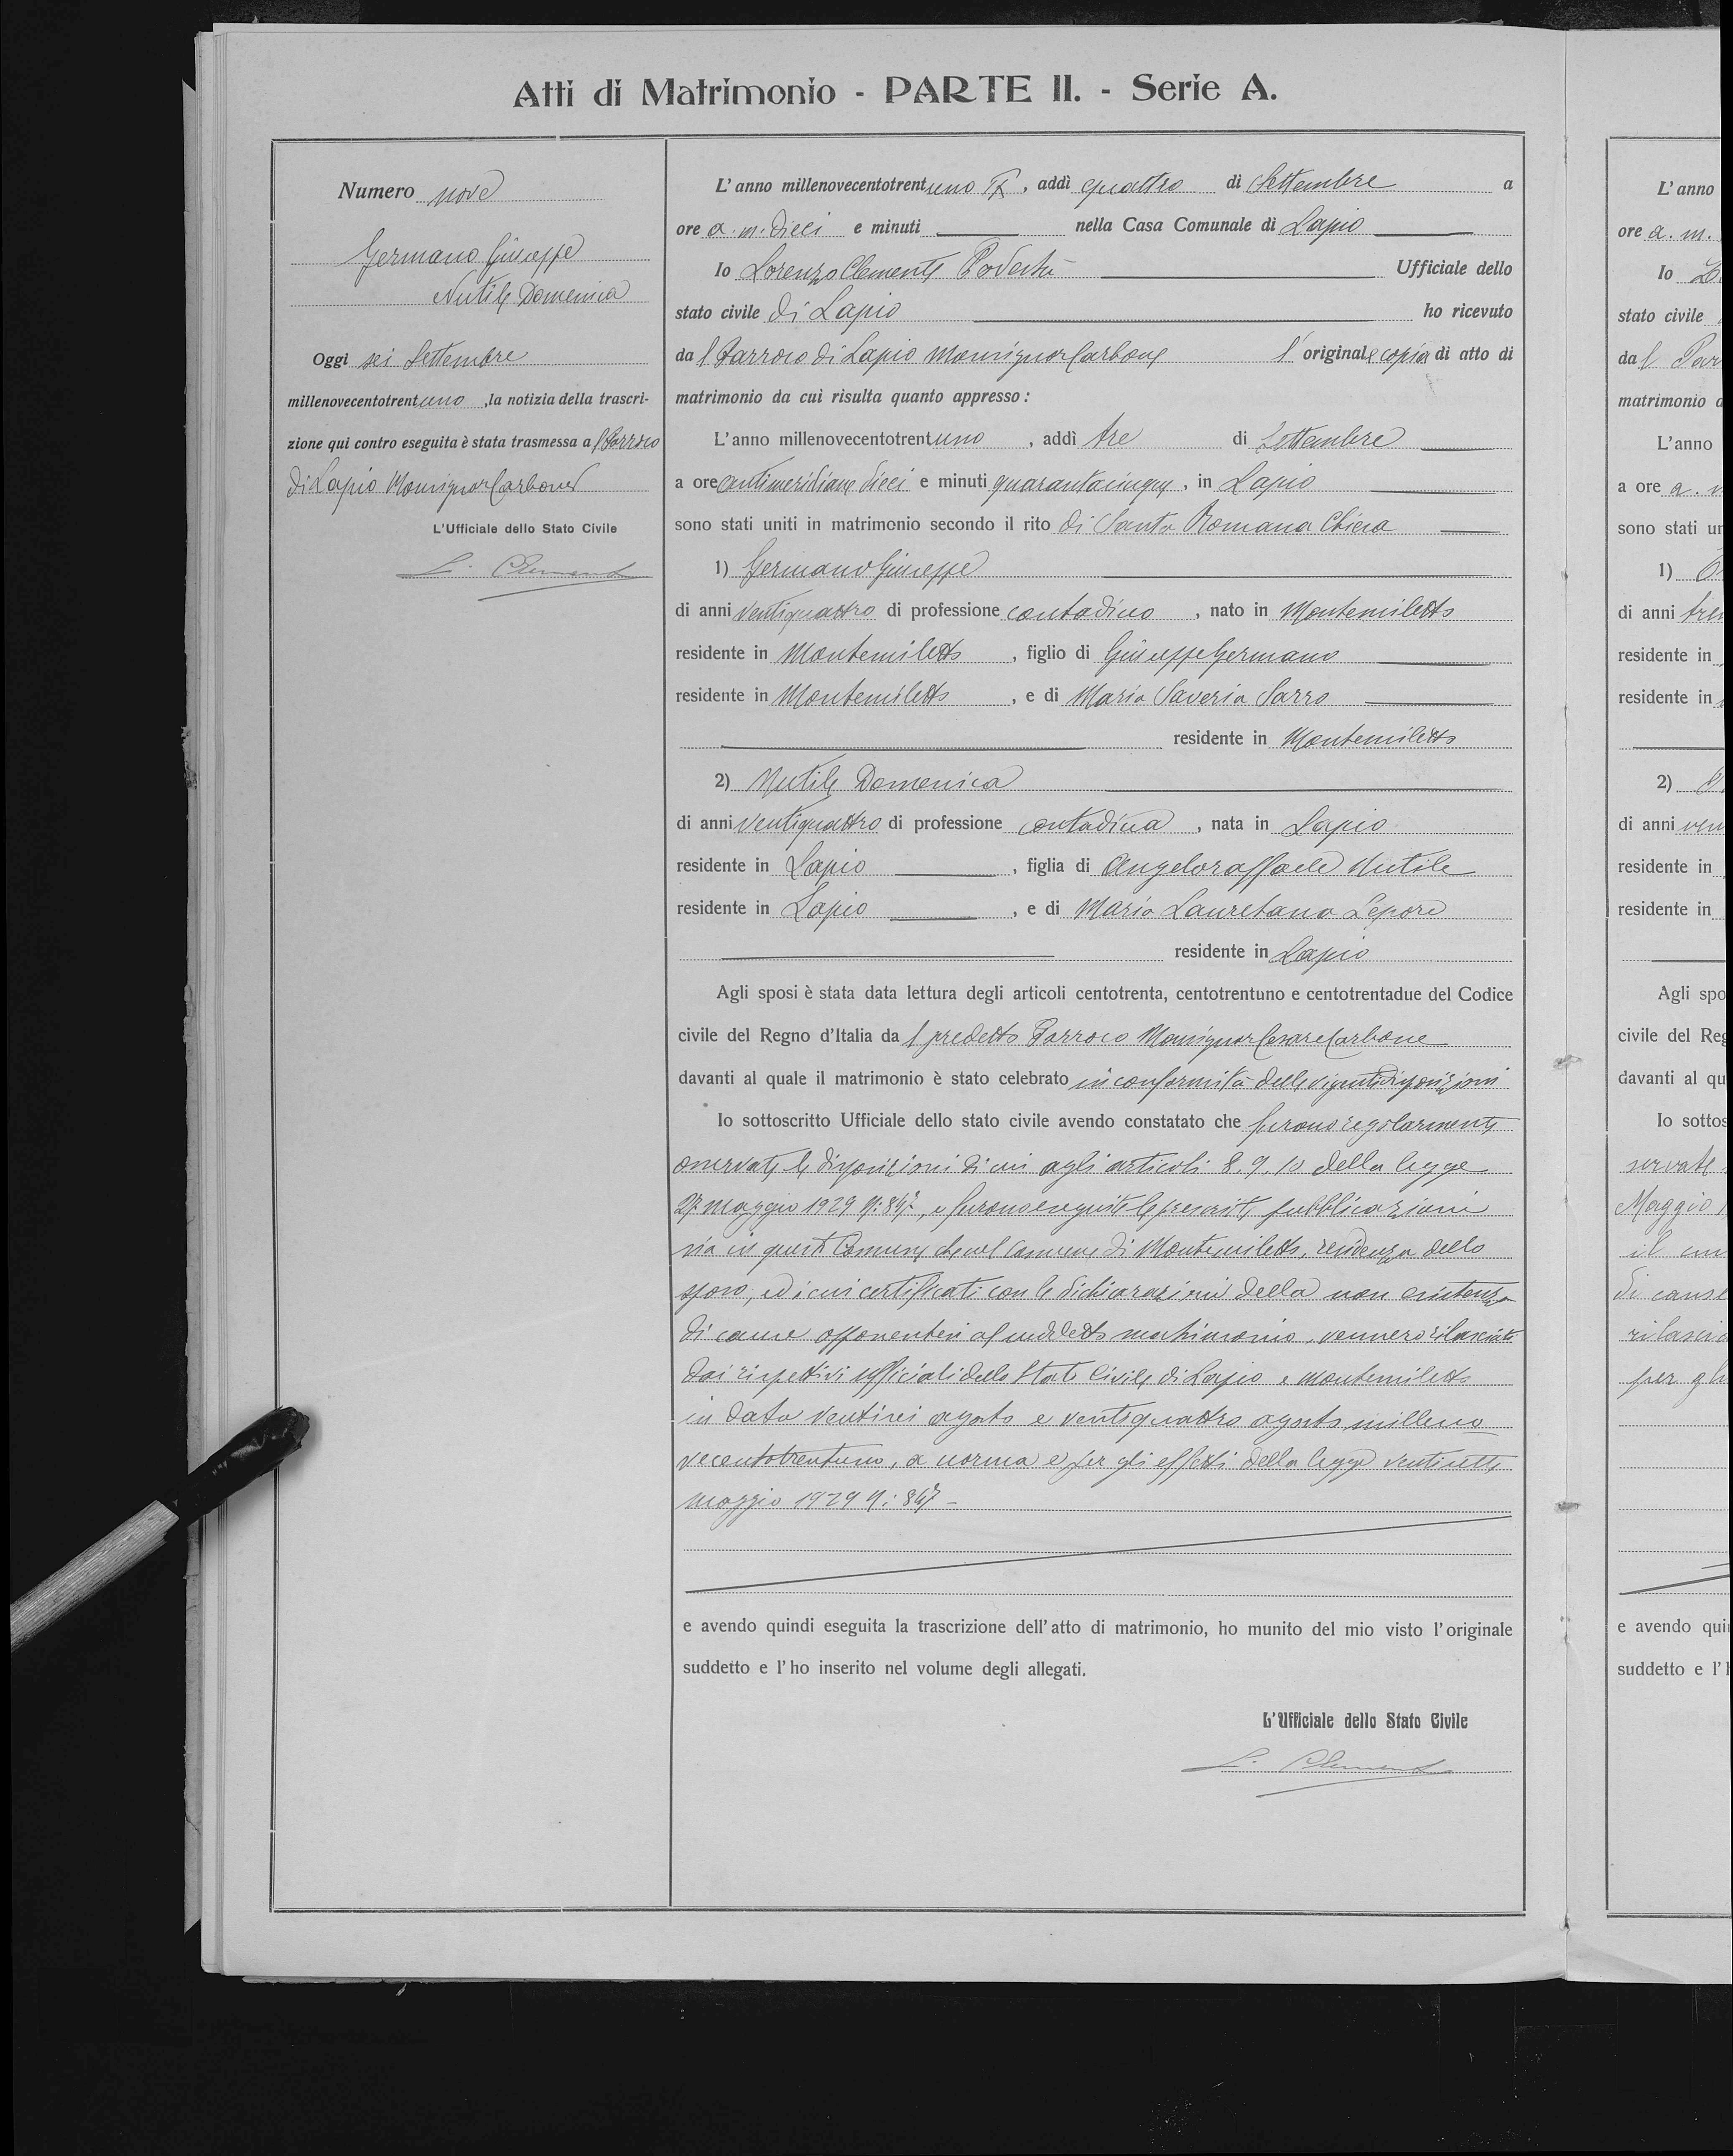 Atti di Matrimonio - PARTE II. - Serie A.
Numero nove
Germano Giuseppe
Nutile Domenica
Oggi sei Settembre
millenovecentotrentuno, la notizia della trascri-
zione qui contro eseguita è stata trasmessa al Parroco
di Lapio Monsignor Carbone
L'Ufficiale dello Stato Civile
L. Clemente
L'anno millenovecentotrentuno IX, addì quattro di Settembre a
ore a.m. dieci e minuti nella Casa Comunale di Lapio
Io Lorenzo Clemente Podestà Ufficiale dello
stato civile di Lapio ho ricevuto
dal Parroco di Lapio Monsignor Carbone l'originale copia di atto di
matrimonio da cui risulta quanto appresso:
L'anno millenovecentotrentuno, addì tre di Settembre
a ore antimeridiane dieci e minuti quarantacinque, in Lapio
sono stati uniti in matrimonio secondo il rito di Santa Romana Chiesa
1) Germano Giuseppe
di anni ventiquattro di professione contadino, nato in Montemiletto
residente in Montemiletto, figlio di Giuseppe Germano
residente in Montemiletto, e di Maria Saveria Sarro
residente in Montemiletto
2) Nutile Domenica
di anni ventiquattro di professione contadina, nata in Lapio
residente in Lapio, figlia di Angeloraffaele Nutile
residente in Lapio, e di Maria Lauretana Lepore
residente in Lapio
Agli sposi è stata data lettura degli articoli centotrenta, centotrentuno e centotrentadue del Codice
civile del Regno d'Italia dal predetto Parroco Monsignor Cesare Carbone
davanti al quale il matrimonio è stato celebrato in conformità delle vigenti disposizioni
Io sottoscritto Ufficiale dello stato civile avendo constatato che furono regolarmente
osservate le disposizioni di cui agli articoli 8. 9. 10 della legge
27 maggio 1929 N: 847, e furono eseguite le prescritte pubblicazioni
sia in questo Comune che nel Comune di Montemiletto, residenza dello
sposo, ed i cui certificati con le dichiarazioni della non esistenza
di cause opponentesi al suddetto matrimonio, vennero rilasciati
dai rispettivi ufficiali dello Stato Civile di Lapio e Montemiletto
in data ventisei agosto e ventiquattro agosto milleno
vecentotrentuno, a norma e per gli effetti della legge ventisette
maggio 1929 N: 847 -
e avendo quindi eseguita la trascrizione dell'atto di matrimonio, ho munito del mio visto l'originale
suddetto e l'ho inserito nel volume degli allegati.
L'Ufficiale dello Stato Civile
L. Clemente
L'anno
ore a. m.
Io
stato civile
dal
matrimonio
L'anno
a ore a.
sono stati
1)
di anni
residente in
residente in
2)
di anni
residente in
residente in
Agli spo
civile del Reg
davanti al qu
Io sottos
servate
Maggio
il
di
per
e avendo qui
suddetto e l'